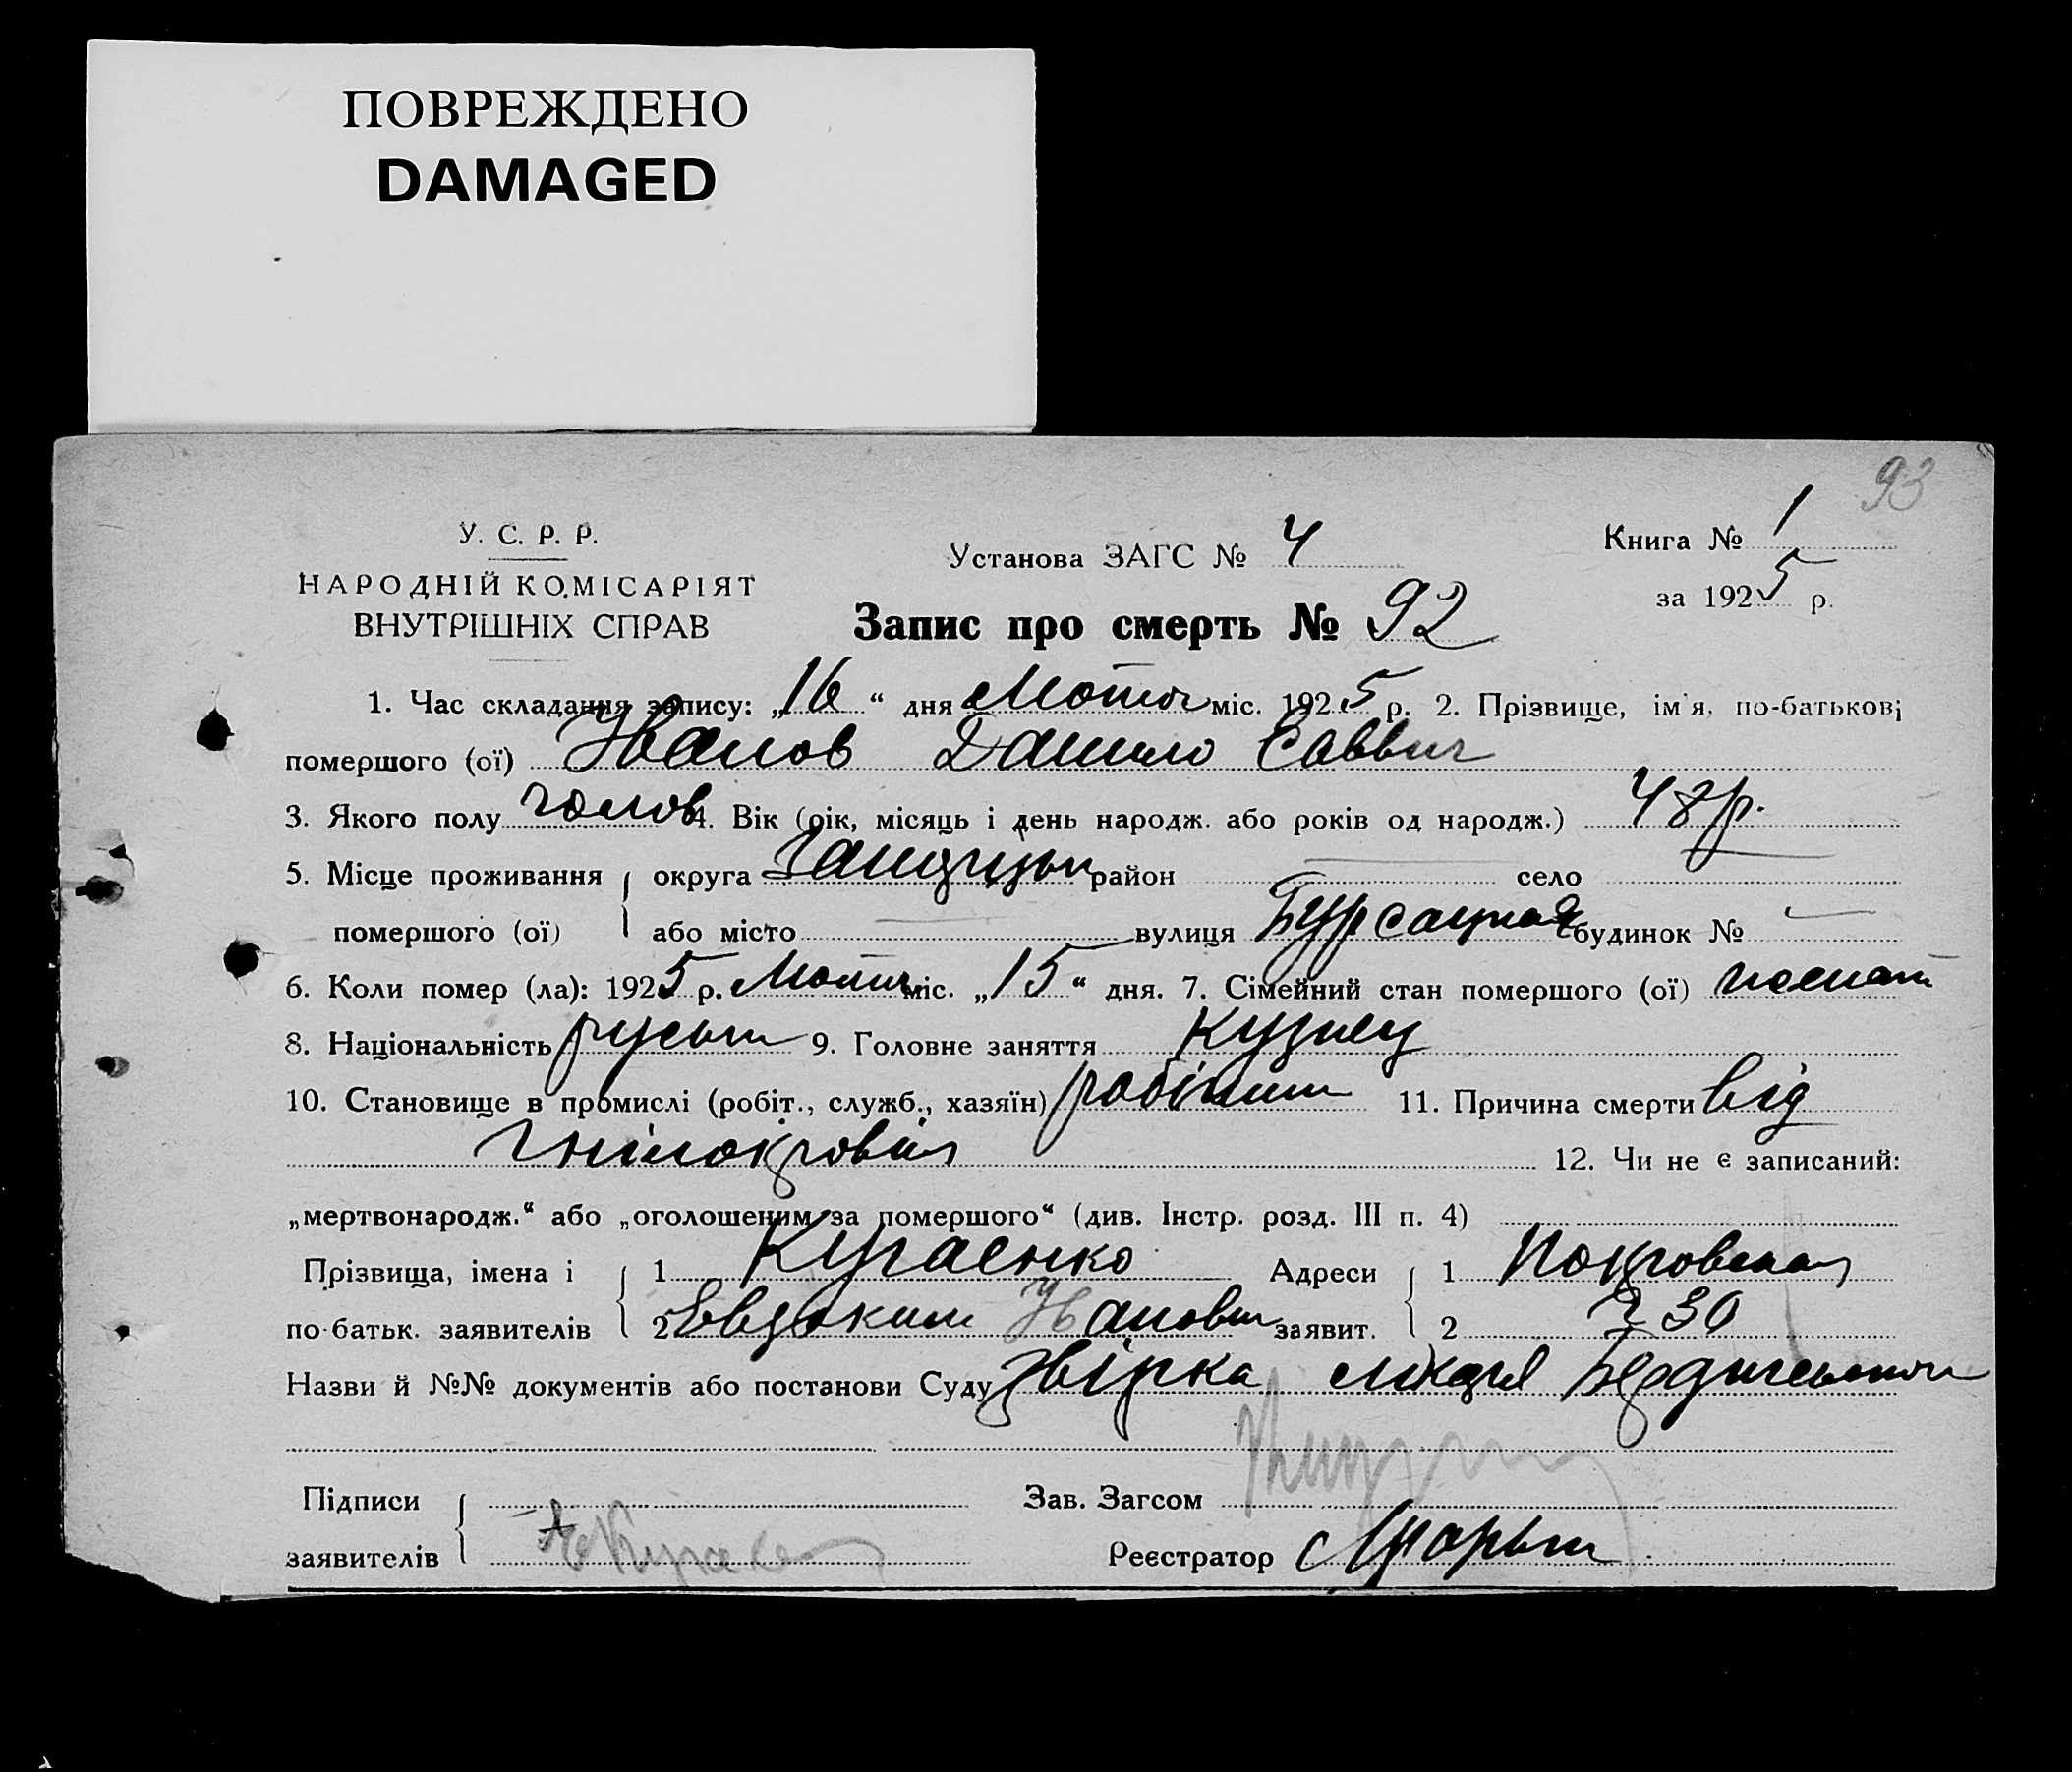 ПОВРЕЖДЕНО
DAMAGED
93
У. С. Р. Р.
НАРОДНІЙ КОМІСАРІЯТ
ВНУТРІШНІХ СПРАВ
Установа ЗАГС № 4
Книга № 1
за 1925 р.
Запис про смерть № 92
1. Час складання запису: „16“ дня Мотня міс. 1925 р. 2. Прізвище, ім'я, по-батькові
помершого (ої) Иванов Данило Саввич
3. Якого полу чолов 4. Вік (рік, місяць і день народж. або років од народж.) 48 р.
5. Місце проживання { округа район — село
помершого (ої) або місто — вулиця Бурсацкая будинок № —
6. Коли помер (ла): 1925 р. міс. „15“ дня. 7. Сімейний стан помершого (ої)
8. Національність руськ 9. Головне заняття Кузнец
10. Становище в промислі (робіт., служб., хазяїн) робітник 11. Причина смерти від
гнілокровія 12. Чи не є записаний:
„мертвонародж.“ або „оголошеним за помершого“ (див. Інстр. розд. III п. 4)
Прізвища, імена і { 1 Кугаенко Адреси { 1 Покровская
по-батьк. заявителів 2 Евдоким Иванович заявит. 2 д 30
Назви й №№ документів або постанови Суду
Підписи { Зав. Загсом
заявителів Реєстратор